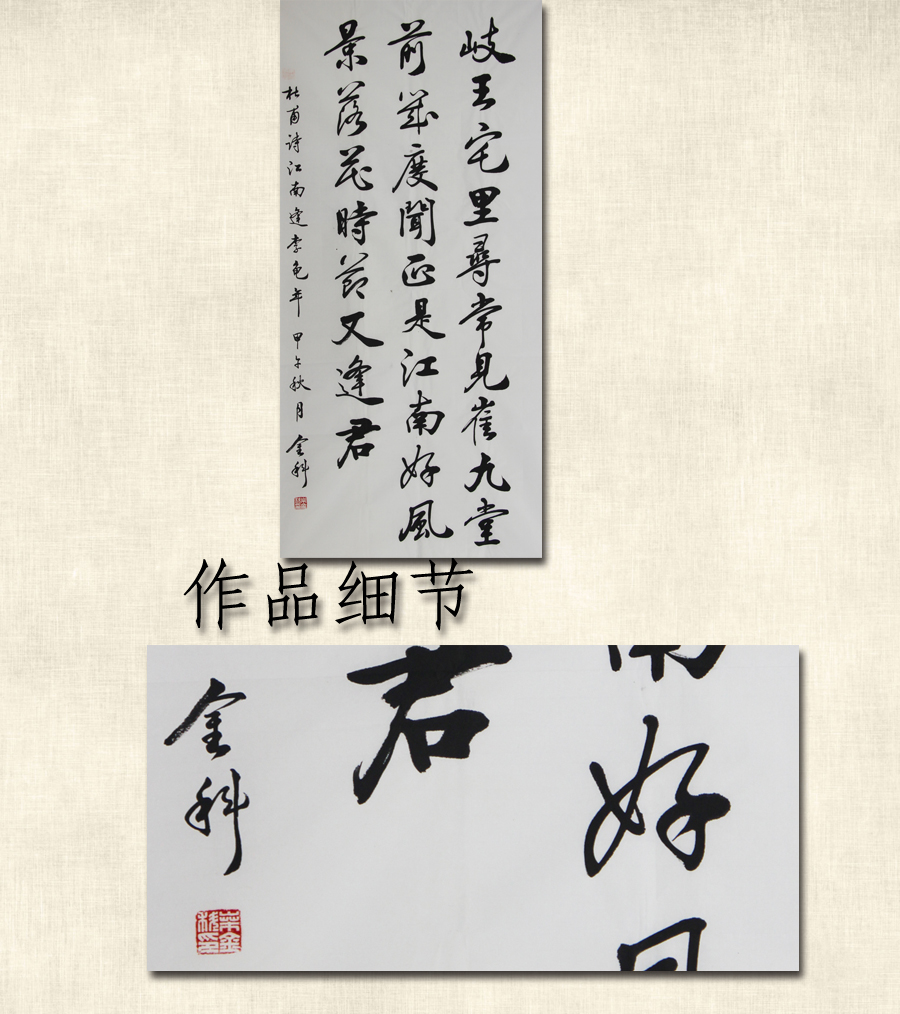 岐王宅里尋常見崔九堂
前幾度聞正是江南好風
景落花時節又逢君
杜甫诗江南逢李龟年 甲午秋月 金科
作品细节
南好風
君
金科